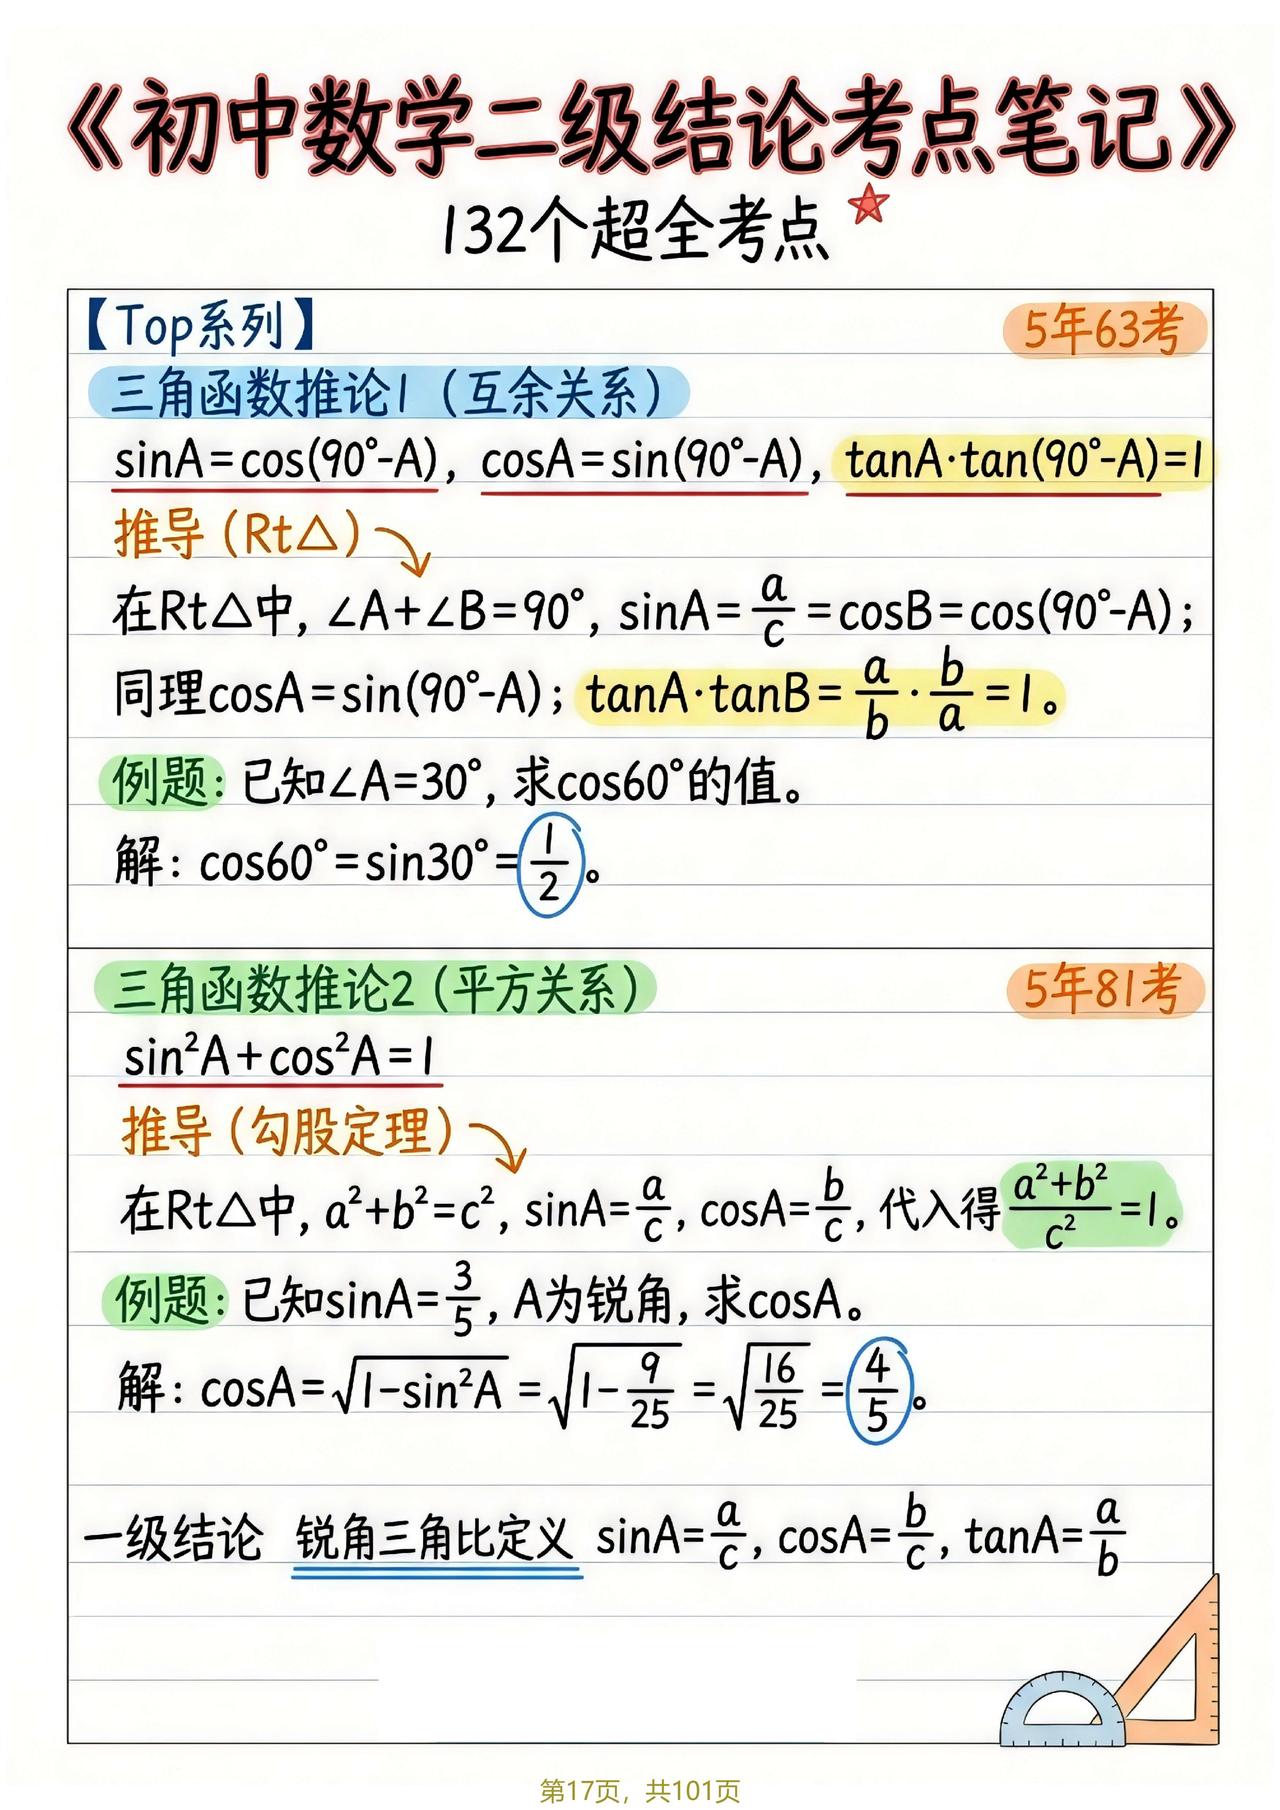 《初中数学二级结论考点笔记》
132个超全考点
【Top系列】 5年63考
三角函数推论1（互余关系）
sinA=cos(90°-A)，cosA=sin(90°-A)，tanA·tan(90°-A)=1
推导（Rt△）
在Rt△中，∠A+∠B=90°，sinA=a/c=cosB=cos(90°-A)；
同理cosA=sin(90°-A)；tanA·tanB=a/b·b/a=1。
例题：已知∠A=30°，求cos60°的值。
解：cos60°=sin30°=1/2。
三角函数推论2（平方关系） 5年81考
sin²A+cos²A=1
推导（勾股定理）
在Rt△中，a²+b²=c²，sinA=a/c，cosA=b/c，代入得(a²+b²)/c²=1。
例题：已知sinA=3/5，A为锐角，求cosA。
解：cosA=√(1-sin²A)=√(1-9/25)=√(16/25)=4/5。
一级结论 锐角三角比定义 sinA=a/c，cosA=b/c，tanA=a/b
第17页，共101页